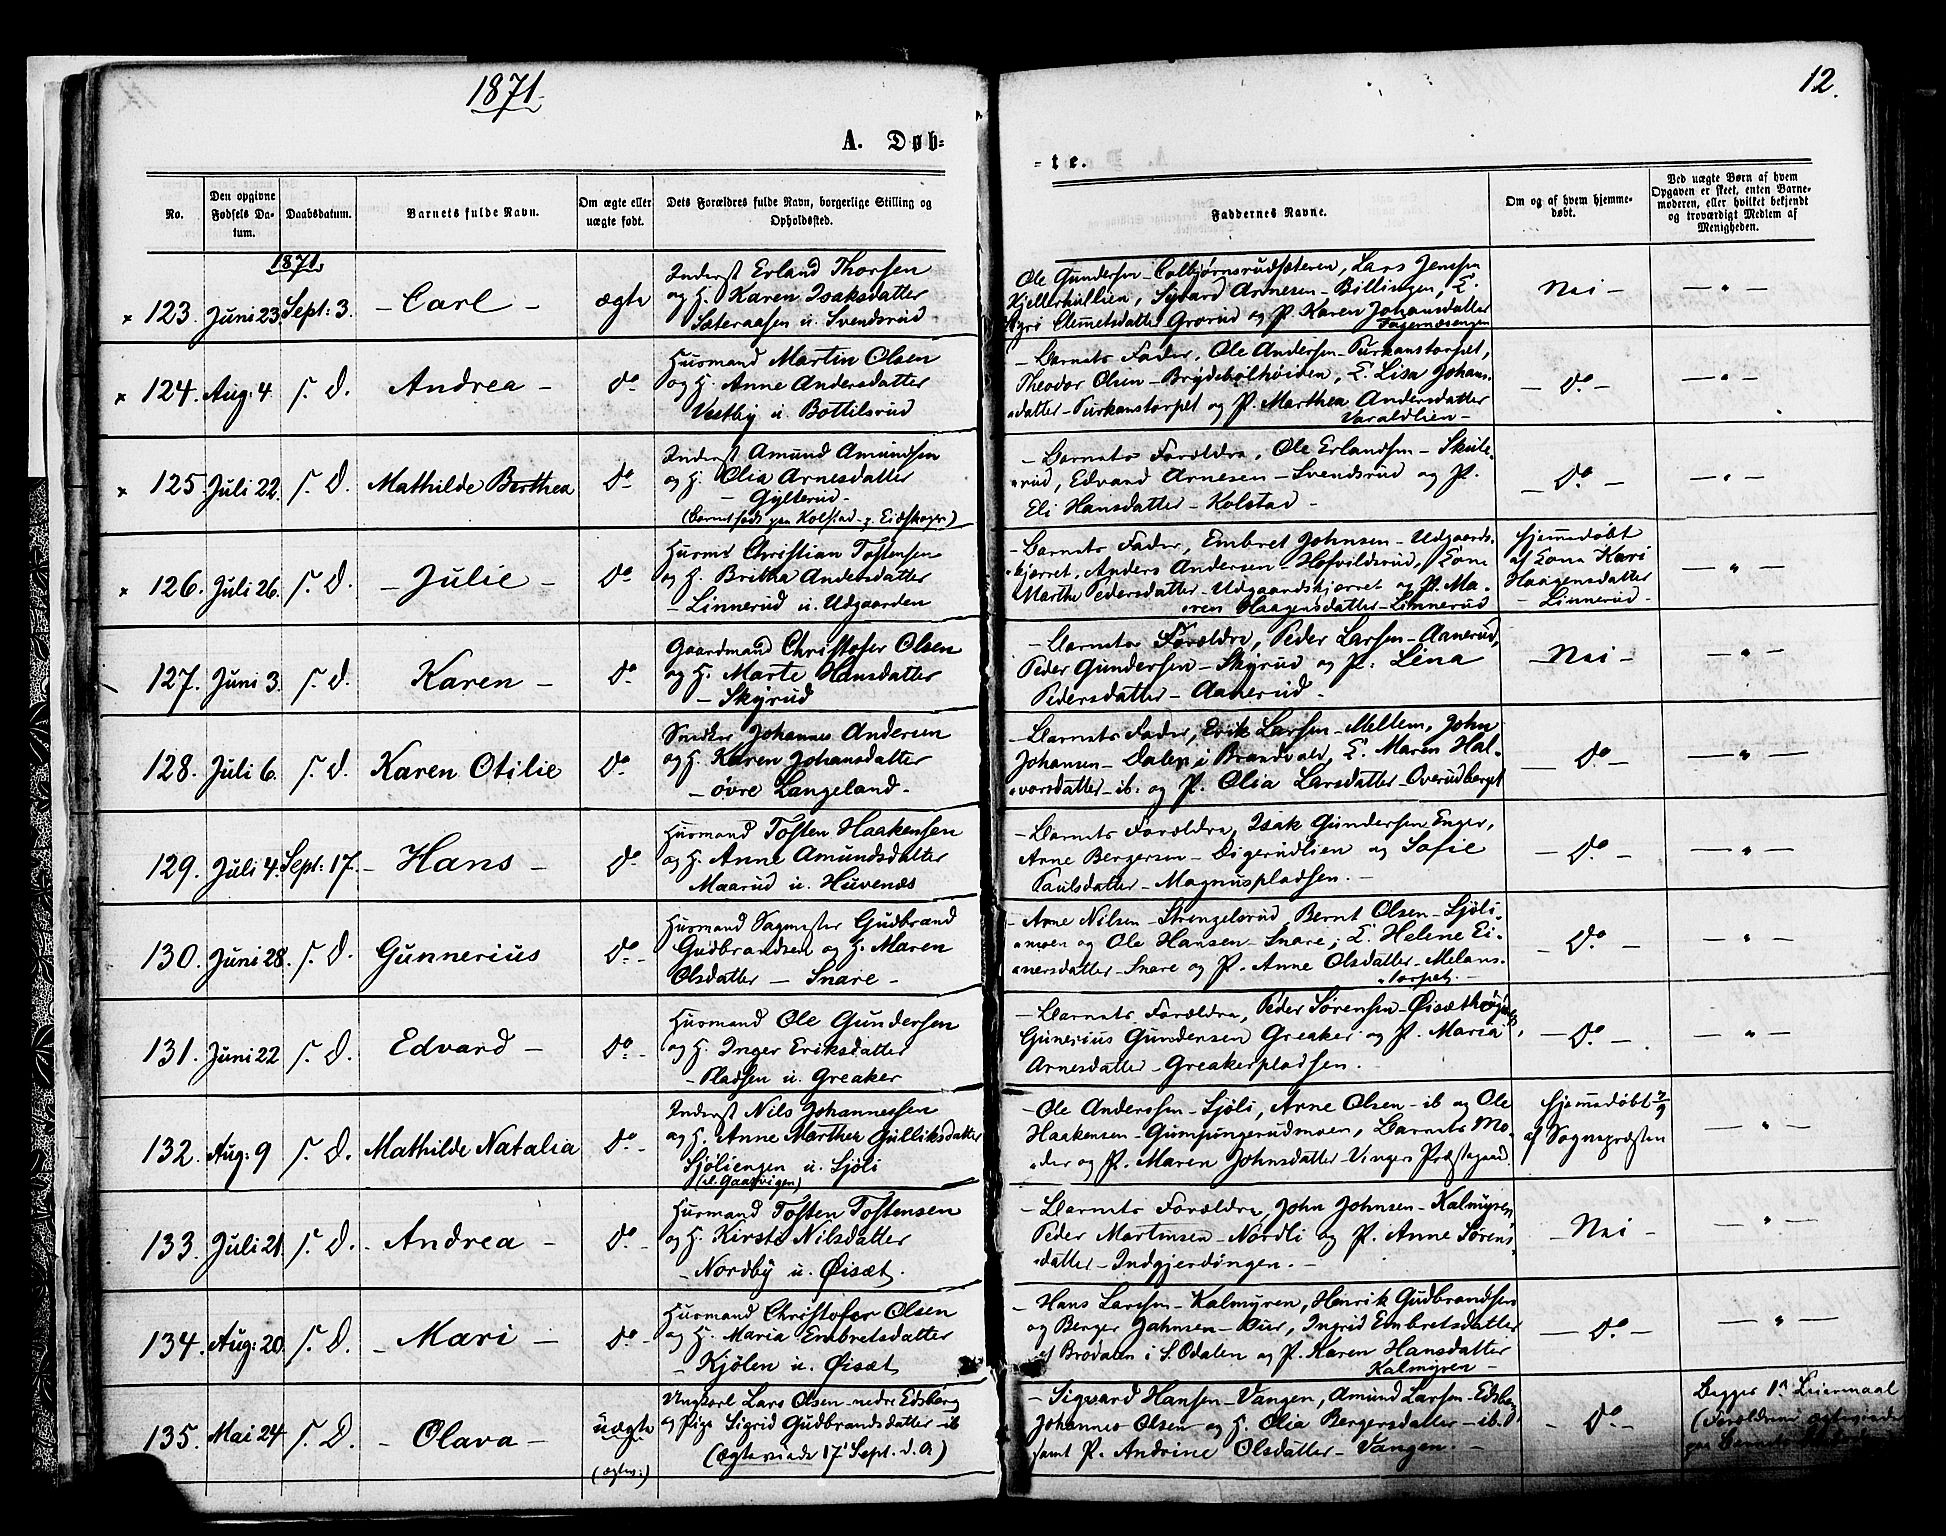 1871.
12.
A. Døb-
-te.
No.
Den opgivne Fødsels Da-
tum.
Daabsdatum.
Barnets fulde Navn.
Om ægte eller
uægte født.
Dets Forældres fulde Navn, borgerlige Stilling og
Opholdssted.
Faddernes Navne.
Om og af hvem hjemme-
døbt.
Ved uægte Børn af hvem
Opgaven er skeet, enten Barne-
moderen, eller hvilket bekjendt
og troværdigt Medlem af
Menigheden.
1871.
x 123. Juni 23. Sept: 3. - Carl - ægte
Inderst Erland Thorsen
og H. Karen Isaksdatter
Sæteraasen u. Svendsrud
Ole Gundersen - Colbjørnsrudsæteren, Lars Jensen
Kjellerhullien, Sivard Arnesen - Billingen, E.
Clemetsdatter Grorud og P. Karen Johansdatter
Fagernæsengen
Nei - - " -
x 124. Aug: 4 s. D. Andrea - do
Husmand Martin Olsen
og H. Anne Andersdatter
Vestby u. Bottilsrud
- Barnets Fader, Ole Andersen - Purkanstorpet,
Theodor Olsen - Brydebølhøiden, E. Lisa Johans-
datter - Purkanstorpet og P. Marthea Andersdatter
Varaldlien -
- do - - " -
x 125. Juli 22. s. D. Mathilde Berthea do
Inderst Amund Amundsen
og H. Olia Arnesdatter
- Gylterud -
(Barnet født paa Kolstad - Eidskoger)
- Barnets Forældre, Ole Erlandsen - Skule-
rud, Edvard Arnesen - Svendsrud og P.
Eli Hansdatter - Kolstad -
- do - - " -
x 126. Juli 26. s. D. - Julie - do
Husmd Christian Tostensen
og H. Britha Andersdatter
- Linnerud u. Udgaarden
- Barnets Fader, Embret Johnsen - Udgaards-
kjerret, Anders Andersen Hofvildsrud, Kone
Marthe Pedersdatter - Udgaardskjerret og P. Ma-
ren Haagensdatter - Linnerud
Hjemmedøbt
af Kona Kari
Haagensdatter
- Linnerud -
- " -
127. Juni 3. s. D. Karen - do
Gaardmand Christofer Olsen
og H. Marte Hansdatter
- Skyrud
- Barnets Forældre, Peder Larsen - Aanerud,
Peder Gundersen - Skyrud og P. Lina
Pedersdatter - Aanerud -
- Nei - - " -
128. Juli 6. s. D. Karen Otilie do
Snedker Johannes Andersen
og H. Karen Johansdatter
- øvre Langeland -
- Barnets Fader, Erik Larsen - Mellem, John
Johansen - Dalen i Brandvald, E. Maren Hal-
vorsdatter - ib. og P. Olia Larsdatter - Overudberget
- do - - " -
129. Juli 4. Sept: 17. - Hans - do
Husmand Tosten Haakensen
og H. Anne Amundsdatter
Maarud u. Huvenæs
- Barnets Forældre, Isak Gundersen Enger,
Arne Bergersen - Digerudlien og Sofie
Paulsdatter - Magnuspladsen. -
- do - - " -
130. Juni 28. s. D. Gunnerius do -
Husmand Sagmester Gudbrand
Gudbrandsen og H. Maren
Olsdatter - Snare -
- Arne Nilsen - Strengelsrud, Bernt Olsen - Sjöli-
moen og Ole Hansen - Snare; E. Helene Ei-
nersdatter - Snare og P. Anne Olsdatter - Melans-
torpet. -
- do - - " -
131. Juni 22 s. D. Edvard - do -
Husmand Ole Gundersen
og H. Inger Eriksdatter
- Pladsen u. Greaker
- Barnets Forældre, Peder Sørensen - Øisæthøgda,
Gunerius Gundersen Greaker og P. Maria
Arnesdatter - Greakerpladsen. -
- do - - " -
132. Aug: 9 s. D. Mathilde Natalia do -
Inderst Nils Johannessen
og H. Anne Marthea Gulliksdatter
Sjöliengen u. Sjöli
(el. Gaasvigen)
- Ole Anderssen - Sjöli, Arne Olsen - ib og Ole
Haakensen - Gumpungerudmoen, Barnets Mo-
der og P. Maren Johnsdatter - Vingers Præstegaard
Hjemmedøbt 7/9
af Sognepræsten
- " -
133. Juli 21. s. D. - Andrea - do -
Husmand Tosten Tostensen
og H. Kirsti Nilsdatter
- Nordby u. Øisæt.
- Barnets Forældre, John Johnsen - Kalmyren,
Peder Martinsen - Nordli og P. Anne Sørens-
datter - Indgjerdingen. -
- Nei - - " -
134. Aug: 20. s. D. - Mari - do -
Husmand Christofer Olsen
og H. Maria Embretsdatter
- Kjölen u. Øisæt
- Hans Larsen - Kalmyren, Henrik Gudbrandsen
og Berger Jahnsen - Bur, Ingrid Embretsdatter
af Brodalen i S. Odalen og P. Karen Hansdatter
Kalmyren -
- do - - " -
135. Mai 24 s. D. - Olava - uægte
(ægtev:)
Ungkarl Lars Olsen - nedre Edsberg
og Pige Sigrid Gudbrandsdatter - ib
(Ægteviede 17' Sept. d. A)
- Sigvard Hansen - Vangen, Amund Larsen - Edsberg
Johannes Olsen og H. Olia Bergersdatter - ib.
samt P. Andrine Olsdatter - Vangen. -
- do -
Begges 1ste Leiermaal
(Forældrene ægteviede